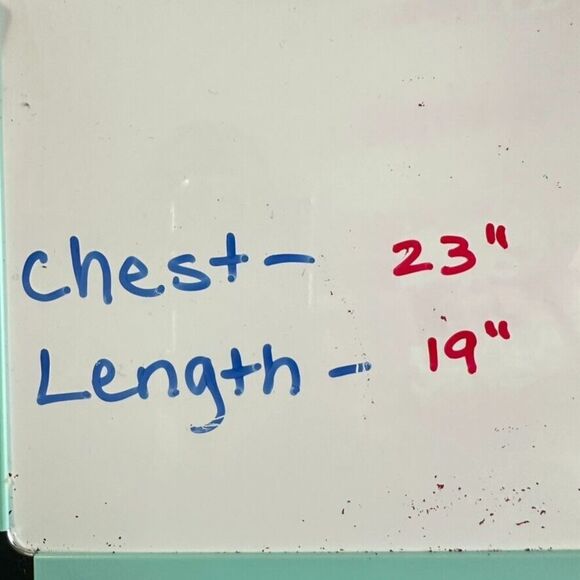 Chest - 23"
Length - 19"